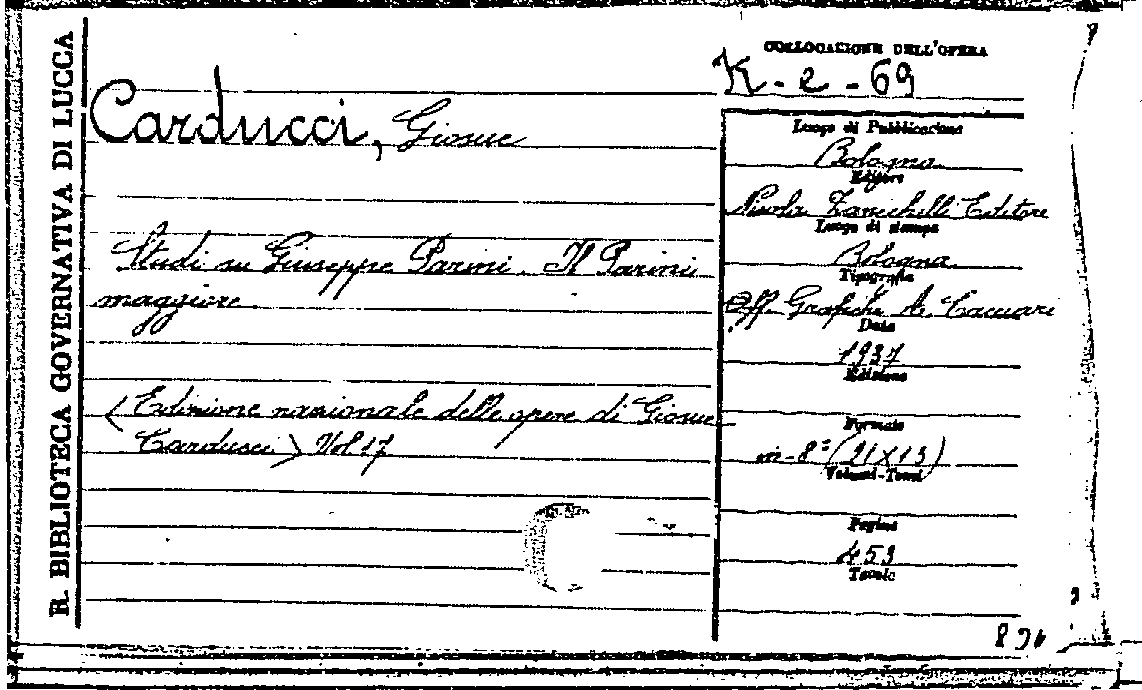 R. BIBLIOTECA GOVERNATIVA DI LUCCA
COLLOCAZIONE DELL'OPERA
K-2-69
Carducci, Giosue
Studi su Giuseppe Parini. Il Parini
maggiore
(Edizione nazionale delle opere di Giosue
Carducci) Vol 17
Luogo di Pubblicazione
Bologna
Editore
Nicola Zanichelli Editore
Luogo di stampa
Bologna
Tipografia
Off. Grafiche A. Cacciari
Data
1937
Edizione
Formato
in-8° (21X13)
Volumi-Tomi
Pagine
453
Tavole